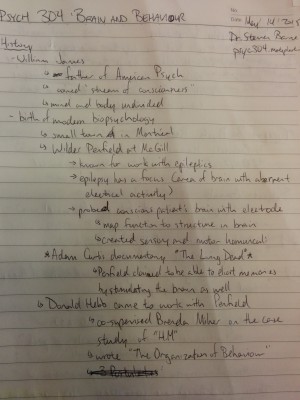 PSYCH 304 BRAIN AND BEHAVIOUR
No.
Date May 14 2015
Dr. Steven
History
- William James
↳ father of American Psych
↳ coined "stream of consciousness"
↳ mind and body undivided
- birth of modern biopsychology
↳ small town in Montreal
↳ Wilder Penfield at McGill
→ known for work with epileptics
→ epilepsy has a focus (area of brain with aberrant
electrical activity)
→ probed conscious patient's brain with electrode
↳ map function to structure in brain
↳ created sensory and motor homunculi
*Adam Curtis documentary "The Living Dead"*
↳ Penfield claimed to be able to elicit memories
by stimulating the brain as well
↳ Donald Hebb came to work with Penfield
↳ co-supervised Brenda Milner on the case
study of "HM"
↳ wrote "The Organization of Behaviour"